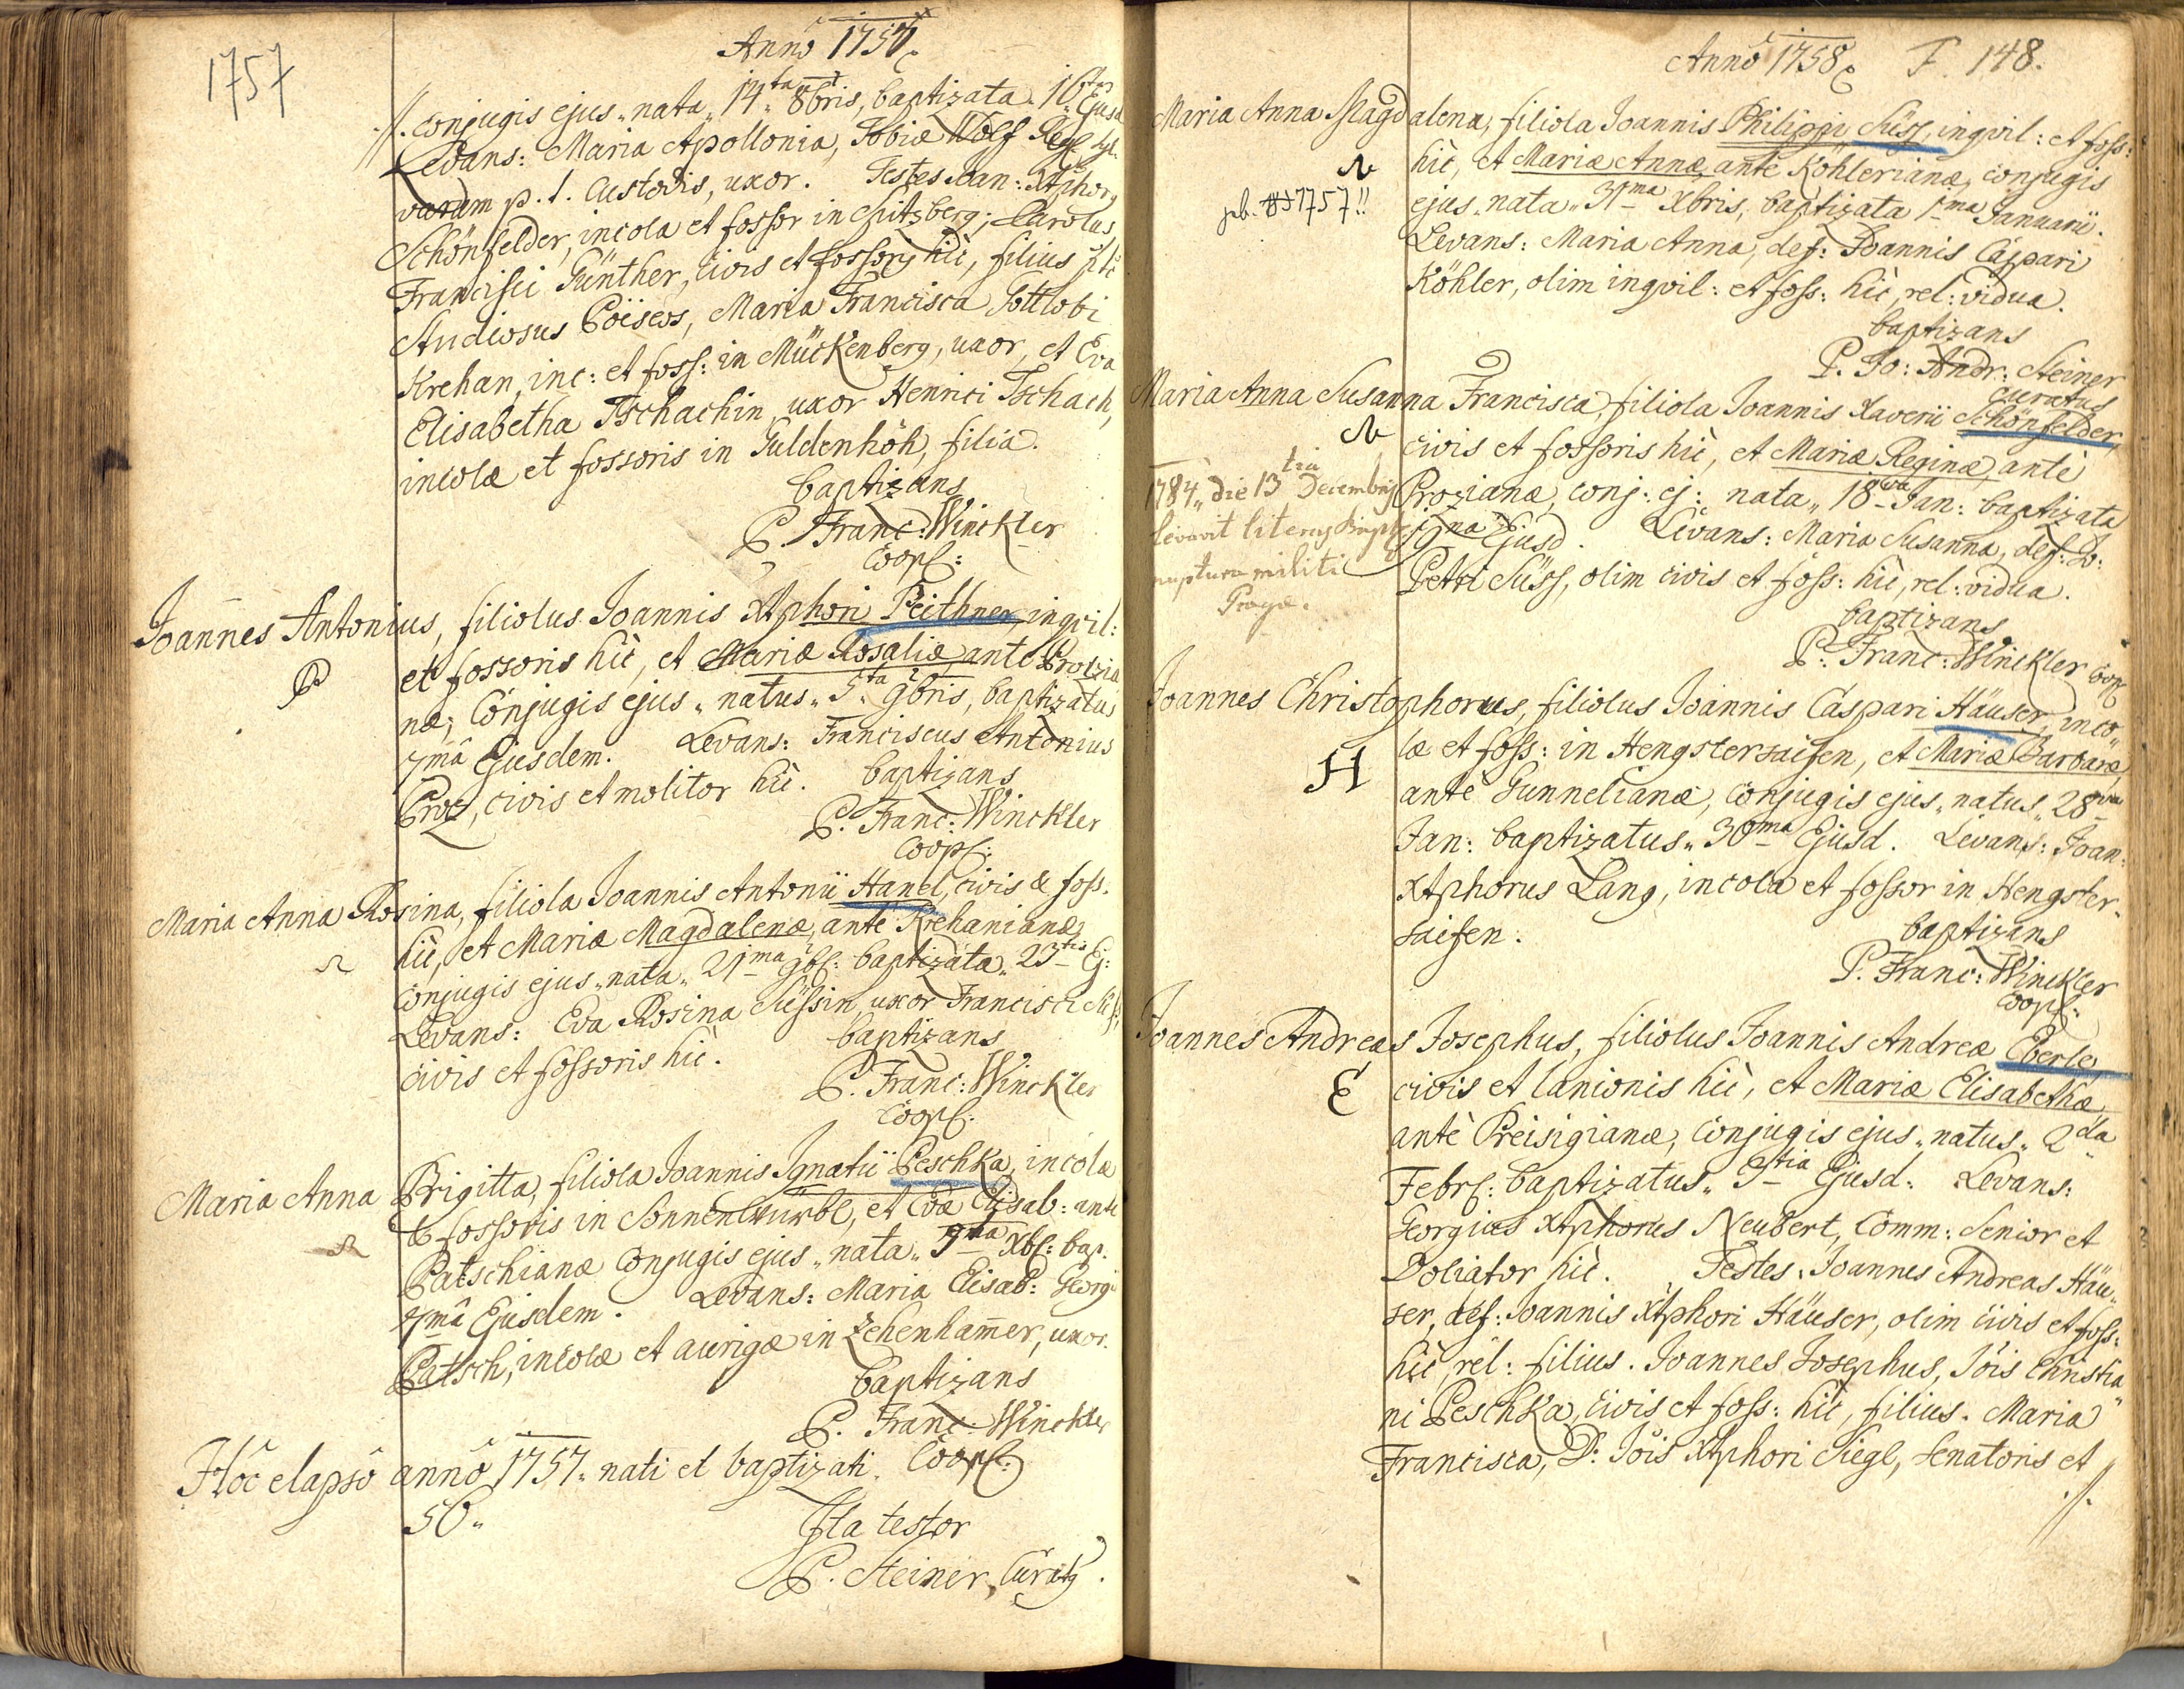 1757
Anno 1757
./. conjugis ejus „nata„ 14ta 8bris, baptizata „16ta Ejusd
Levans: Maria Apollonia, Tobiæ Wolf
p. t. Custodis, uxor. Testes Joan: Xtphor9
Schönfelder, incola et fossor in Spitzberg; Carolus,
Francisci Günther, civis et fossoris hic, filius
Studiosus Poëseos, Maria Francisca Gottlobi
Krehan, inc: et foss: in Mückenberg, uxor, et Eva
Elisabetha Tschachin, uxor Henrici Tschach,
incolæ et fossoris in Guldenhöh, filia.
baptizans
P. Franc: Winckler
Coop:
Joannes Antonius, filiolus Joannis Xtphori Peithner, inqvil:
P et fossoris hic, et Mariæ Rosaliæ, ante Prozia
næ, Conjugis ejus „natus„ 5ta 9bris, baptizatus
7mâ Ejusdem. Levans: Franciscus Antonius
Proz, civis et molitor hic. baptizans
P. Franc: Winckler
Coop:
Maria Anna Rosina, filiola Joannis Antonii Hanel, civis & foss.
hic, et Mariæ Magdalenæ, ante Krehanianæ
conjugis ejus „nata„ 21ma 9b: baptizata„ 23tia Ej:
Levans: Eva Rosina Süssin, uxor Francisci Süss,
civis et fossoris hic. baptizans
P. Franc: Winckler
Coop:
Maria Anna Brigitta, filiola Joannis Ignatii Peschka, incolæ
& fossoris in Sonnenwürbl, et Evæ Elisab: ante
Patschianæ Conjugis ejus „nata„ Xb: bap.
7mâ Ejusdem. Levans: Maria Elisab: Georgii
Patsch, incolæ et aurigæ in Zehenham̄er, uxor.
baptizans
P. Franc: Winckler
Hôc elapsô annô 1757„ nati et baptizati. Coop:
50„
Ita testor
P. Steiner, Curat9.
Anno 1758 F. 148.
Maria Anna Magdalena, filiola Joannis Philippi Süss, inqvil: et foss:
N hic, et Mariæ Annæ, ante Köhlerianæ, conjugis
geb. 1757!! ejus „nata„ 31ma Xbris, baptizata 1ma Januarii.
Levans: Maria Anna, def: Joannis Caspari
Köhler, olim inqvil: et foss: hic, rel: vidua.
baptizans
P. Jo: Andr: Steiner
curatus
Maria Anna Susanna Francisca, filiola Joannis Xaverii Schönfelder,
N civis et fossoris hic, et Mariæ Reginæ, antè
Prozianæ, conj: ej: nata„ 18va Jan: baptizata
19na Ejusd. Levans: Maria Susanna, def: D:
Petri Süss, olim civis et foss: hic, rel: vidua.
1784„ die 13tia Decembris
levavit literas
nuptura militi
Pragæ.
baptizans
P: Franc: Winckler Coop
Joannes Christophorus, filiolus Joannis Caspari Häuser, inco„
H læ et foss: in Hengstersaifen, et Mariæ Barbaræ,
antè Gunnelianæ, conjugis ejus„ natus„ 28va
Jan: baptizatus„ 30ma Ejusd. Levans: Joan:
Xtphorus Lang, incola et fossor in Hengster„
saifen.
baptizans
P. Franc: Winckler
Coop:
Joannes Andreas Josephus, filiolus Joannis Andreæ Eberle,
E civis et lanionis hic, et Mariæ Elisabethæ,
antè Preisigianæ, Conjugis ejus„ natus„ 2da
Febr: baptizatus„ 3tia Ejusd: Levans:
Georgius Xtphorus Neubert, Comm: Senior et
Doliator hic. Testes: Joannes Andreas Häu„
ser, def: Joannis Xtphori Häuser, olim civis et foss:
hic rel: filius. Joannes Josephus, Jois Christia„
ni Peschka, civis et foss: hic, filius. Maria
Francisca, D: Jois Xtphori Siegl, senatoris et
./.